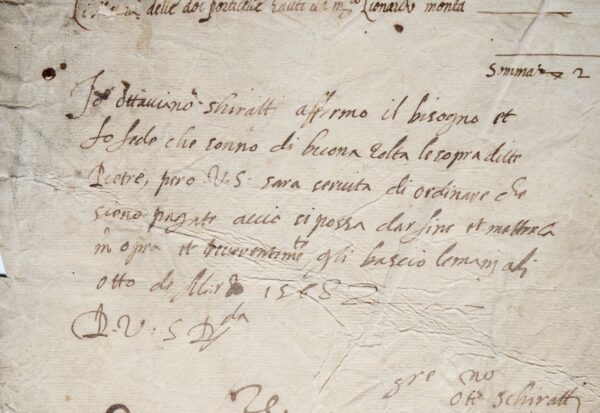 delle doi porticelle hauti da m Lionardo monta
Somma 2
Io ottaviano schiratti affermo il bisogno et
fo fede che sonno di buona Colta le sopra ditte
Pietre, pero V.S. sara servita di ordinare che
sieno pagate accio si possa dar fine et metterla
in opra et reverentemte gli bascio le mani ali
otto di 1565
D. V. S R da
Otto schiratti